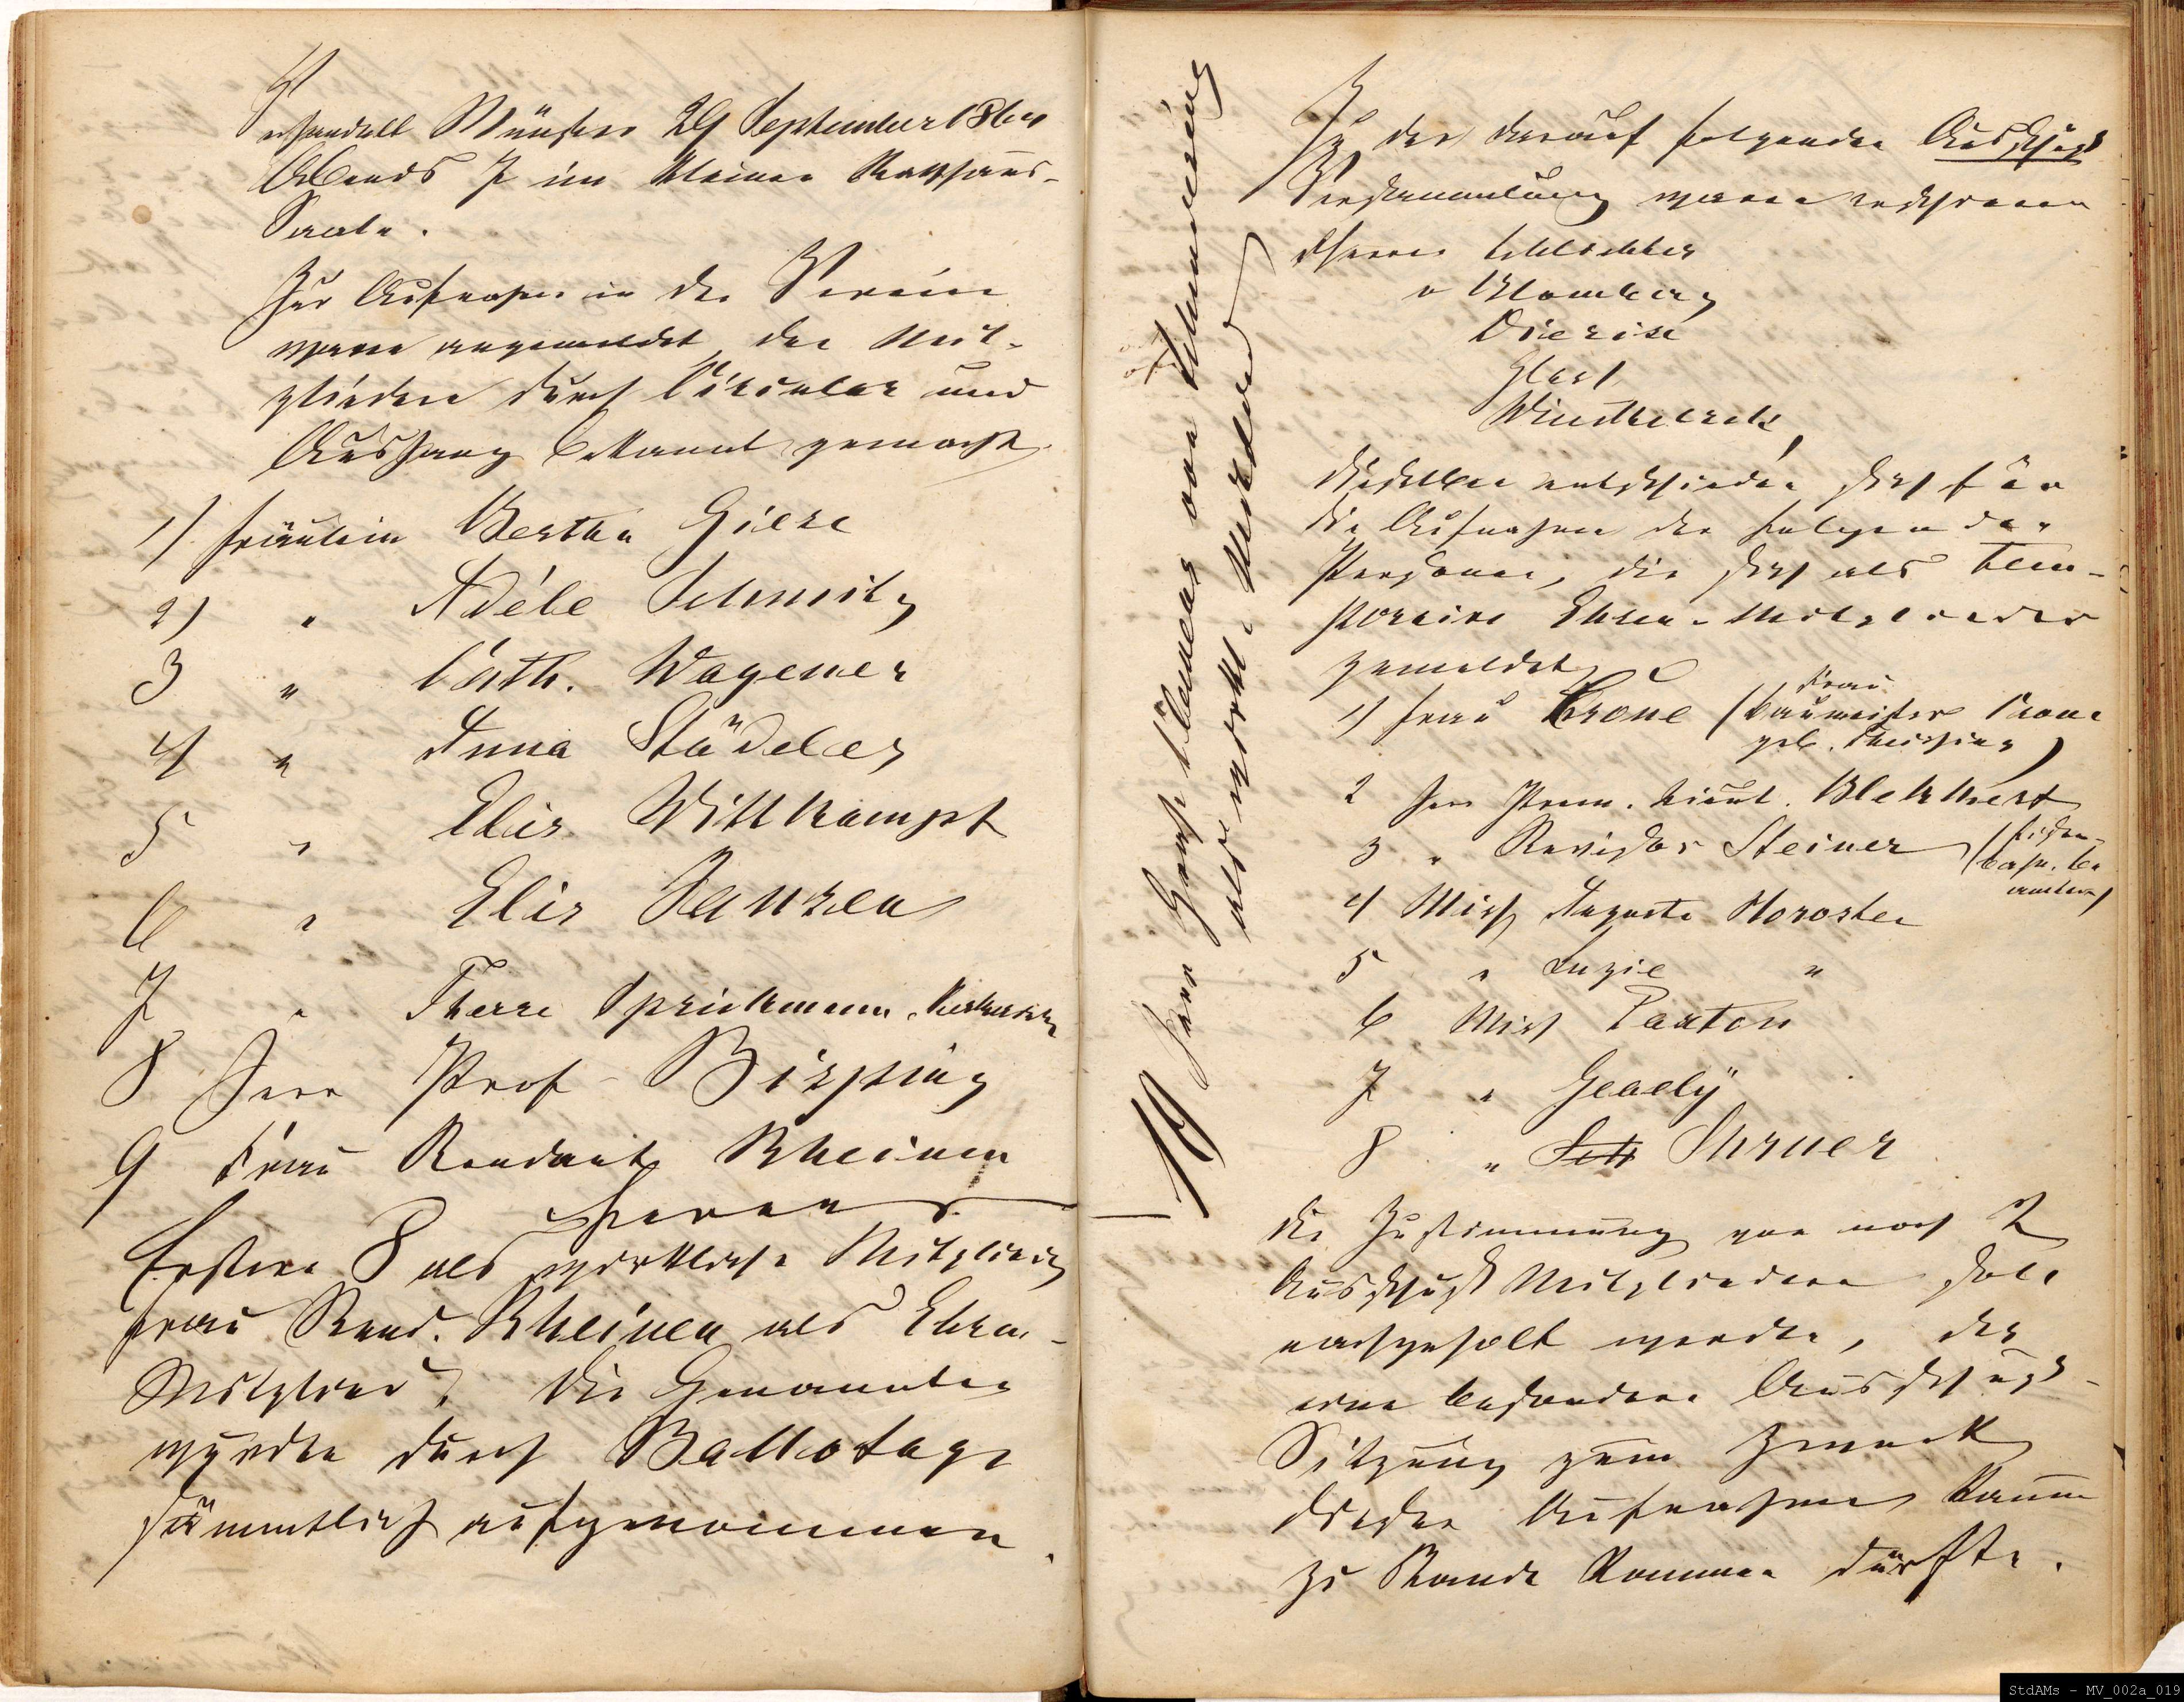 Verhandelt Münster 29 September 1860
Abends 7 im kleinen Rathhaus-
Saale.
Zur Aufnahme in den Verein
waren angemeldet, den Mit-
gliedern durch Circular und
Aushang bekannt gemacht
1) Fräulein Bertha Giese
2) " Adéle Schmitz
3 " Cath. Wagener
4) " Anna Städeler
5 " Elis Wittkampf
6 " Elis Janzen
7 " Therese Sprickmann-Kerkerinck
8 Herr Prof Bisping
9 Frau Rendant Rheinen
Erstere 8 als wirkliche Mitglieder
Frau Rend. Rheinen als Ehren-
Mitglied. Die Genannten
wurden durch Ballotage
sämmtlich aufgenommen.
10 Herr Graf Clemens von Schmising
als wirkl. Mitglied
In der darauf folgenden Ausschuß
Versammlung waren erschienen
Herren Schlichter
v Blomberg
Diericke
Windthorst
Dieselben entschieden sich für
die Aufnahme der folgenden
Personen, die sich als tem-
poraire Ehren-Mitglieder
gemeldet
1) Frau Crone (Frau
Baumeister Crone
geb. )
2 Herr Prem. Lieut.
3 " Revisor Steiner (Eisen-
bahn-be
amter)
4 Miss Augusta
5 " Luzie "
6 Miss Paxton
7 "
8 "
Die Zustimmung von noch 2
Ausschuß Mitgliedern soll
nachgeholt werden, da
eine besondere Ausschuß-
Sitzung zum Zweck
dieser Aufnahme kaum
zu Stande kommen dürfte.
StdAMs - MV_002a_019